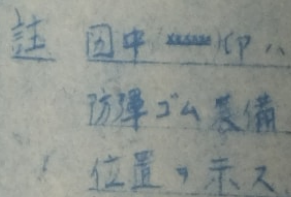 註 図中 xxxxxx 印ハ
防弾ゴム装備
位置ヲ示ス